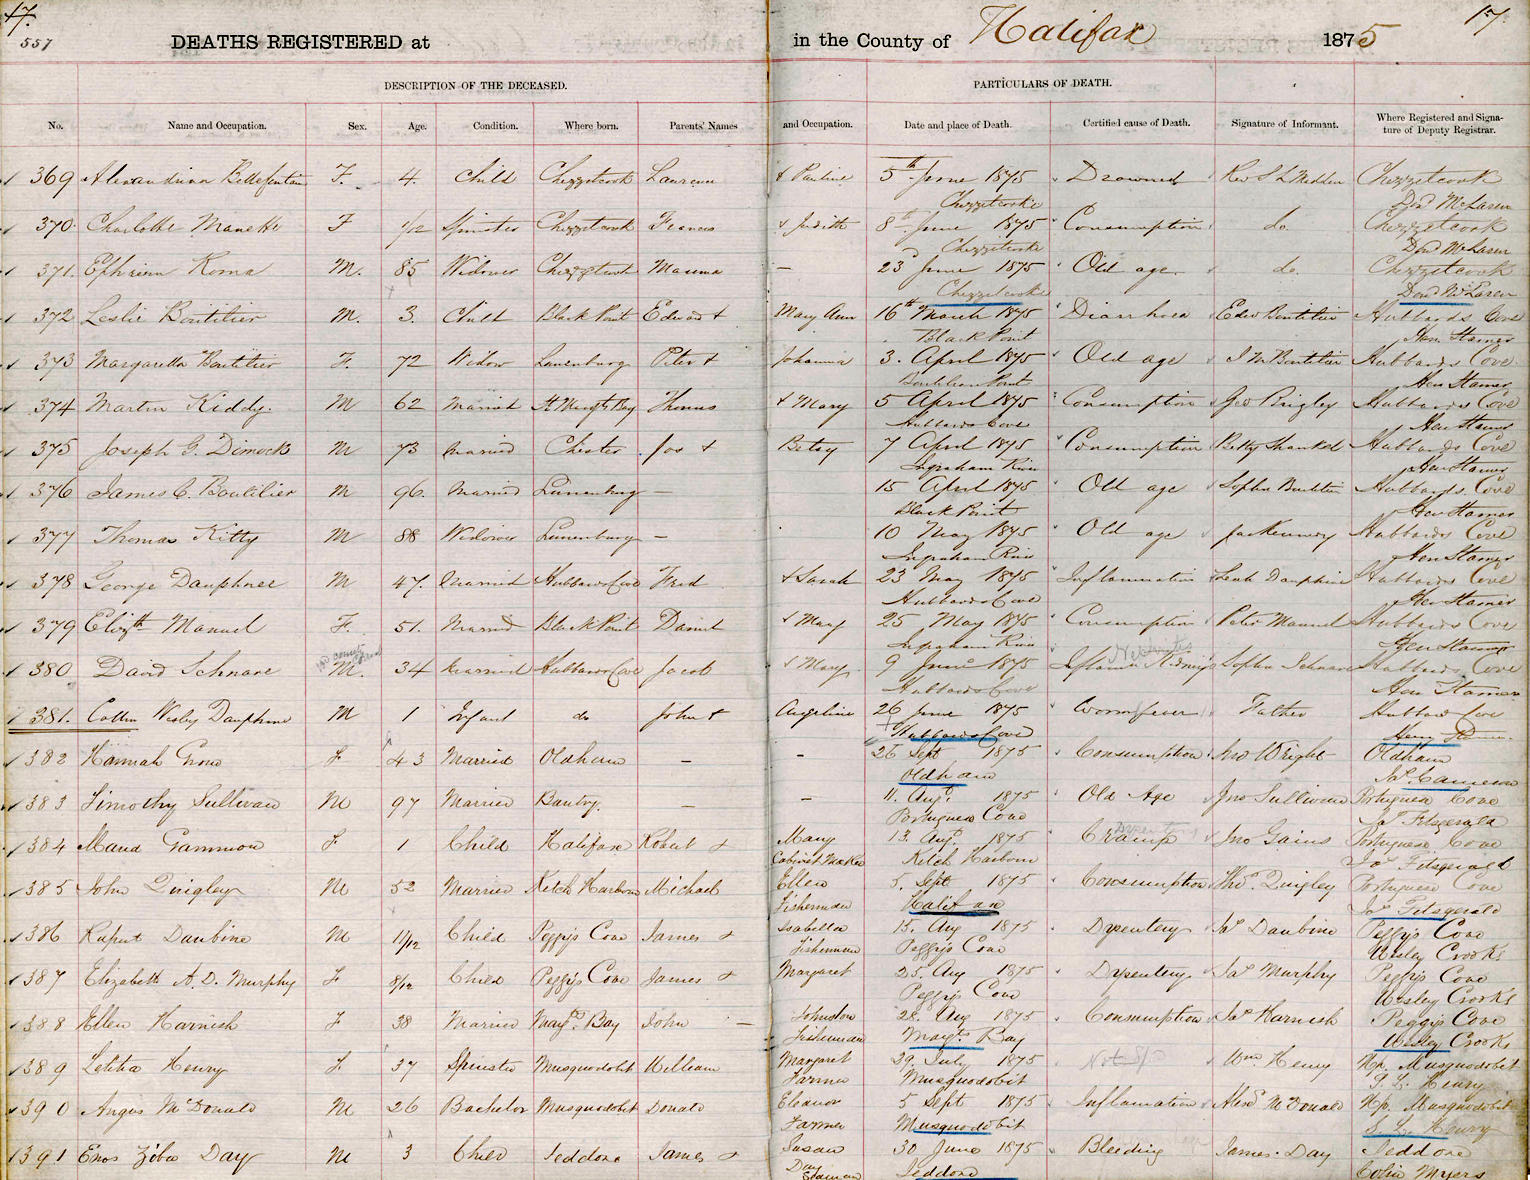 17.
557
DEATHS REGISTERED at in the County of Halifax 1875 17
DESCRIPTION OF THE DECEASED. PARTICULARS OF DEATH.
No. Name and Occupation. Sex. Age. Condition. Where born. Parents' Names and Occupation. Date and place of Death. Certified cause of Death. Signature of Informant. Where Registered and Signature of Deputy Registrar.
369 Alexandrina Bellefontain F. 4. Child Chezzetcook Laurence & Pauline 5th June 1875 Drowned Rev S L Madden Chezzetcook
Chezzetcooke Don McLaren
370. Charlotte Manette F 1/12 Spinster Chezzetcook Francois & Judith 8th June 1875 Consumption do. Chezzetcook
Chezzetcooke Don McLaren
371. Ephriam Roma M. 85 Widower Chezzetcook Maxima — 23 June 1875 Old age. do. Chezzetcook
Chezzetcooke Don McLaren
372 Leslie Boutilier M. 3. Child Black Point Edward & Mary Ann 16th March 1875 Diarrhoea Edw Boutilier Hubbards Cove
Black Point Hen Stamer
373 Margaretta Boutilier F. 72 Widow Lunenburg Peter & Johanna 3. April 1875 Old age J M Boutilier Hubbards Cove
Point Hen Stamer
374 Martin Kiddy. M 62 Married St Margts Bay Thomas & Mary 5 April 1875 Consumption Geo Quigley Hubbards Cove
Hubbards Cove Hen Stamer
375 Joseph G. Dimock M 73 Married Chester Jos & Betsy 7 April 1875 Consumption Betty Shankel Hubbards Cove
Ingraham River Hen Stamer
376 James C. Boutilier M 96. Married Lunenburg — 15 April 1875 Old age Sophia Boutilier Hubbards Cove
Black Point Hen Stamer
377 Thomas Kitty M 88 Widower Lunenburg — 10 May 1875 Old age Jas Hubbards Cove
Ingraham River Hen Stamer
378 George Dauphnee M 47. Married Hubbards Cove Fred & Sarah 23 May 1875 Inflammation Leah Dauphine Hubbards Cove
Hubbards Cove Hen Stamer
379 Elizth Manuel F. 51. Married Black Point Daniel & Mary 25 May 1875 Consumption Peter Manuel Hubbards Cove
Ingraham River Hen Stamer
380 David Schnare M. 34 Married Hubbards Cove Jacob & Mary 9 June 1875 Inflam Kidneys Sophia Schnare Hubbards Cove
Nephritis
Hubbards Cove Hen Stamer
381. Collin Wesley Dauphine M 1 Infant do John & Angeline 26 June 1875 Worm fever Father Hubbard Cove
Hubbards Cove Henry
382 Hannah Grono F 43 Married Oldham — - 26 Sept 1875 Consumption Jno Wright Oldham
Oldham Jas. Cameron
383 Timothy Sullivan M 97 Married Bantry. — - 11. Augt. 1875 Old Age Jno Sullivan Portuguese Cove
Portuguese Cove Jas Fitzgerald
384 Maud Gammon F 1 Child Halifax Robert & Mary 13. Augt 1875 Cramp Jno Gains Portuguese Cove
Cabinet Maker Ketch Harbour Jas Fitzgerald
385 John Quigley M 52 Married Ketch Harbour Michael Ellen 5. Sept 1875 Consumption Thos. Quigley Portuguese Cove
Fisherman Halifax Jas Fitzgerald
386 Rupert Daubine M 11/12 Child Peggy's Cove James & Isabella 15. Aug 1875 Dysentery Jas Daubine Peggy's Cove
Fisherman Peggys Cove Wesley Crooks
387 Elizabeth A. D. Murphy F 8/12 Child Peggy's Cove James & Margaret 25. Aug 1875 Dysentery Jas Murphy Peggys Cove
Peggys Cove Wesley Crooks
388 Ellen Harnish F 38 Married Magts Bay John — Johnston 28. Aug 1875 Consumption Jas Harnish Peggys Cove
Fisherman Magts Bay Wesley Crooks
389 Letitia Henry F. 37 Spinster Musquodobit William Margaret 29. July 1875 Wm Henry Up. Musquodobit
Farmer Musquodobit S. L. Henry
390 Angus McDonald M 26 Bachelor Musquodobit Donald Eleanor 5 Sept 1875 Inflamation Alexd McDonald Up. Musquodobit
Farmer Musquodobit S. L. Henry
391 Enos Ziba Day M 3 Child Jeddore James & Susan 30 June 1875 Bleeding James. Day Jeddore
Day Seaman Jeddore Colin Myers